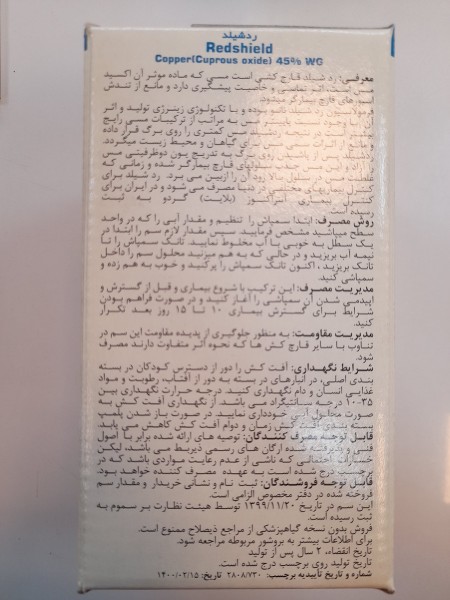 ردشیلد
Redshield
Copper(Cuprous oxide) 45% WG
معرفی: رد شیلد قارچ کشی است مسی که ماده موثر آن اکسید
مس است، اثر تماسی و خاصیت پیشگیری دارد و مانع از تندش
اسپرهای قارچ بیمارگر میشود.
فرمولاسیون رد شیلد و با تکنولوژی زینرژی تولید و اثر
به مراتب از ترکیبات مسی رایج
است در نتیجه ردشیلد مس کمتری را روی برگ قرار داده
و مانع از اثرات سمی مس برای گیاهان و محیط زیست میگردد.
ردشیلد پس از پاشیدن روی برگ به تدریج یون دوظرفیتی مس
قارچ بیمارگر شده و زمانی که
غلظت مس در سلول بالا رود آن را ازبین می برد. رد شیلد برای
کنترل بیماریهای مختلفی در دنیا مصرف می شود و در ایران برای
کنترل بیماری آنتراکنوز (بلایت) گردو به ثبت
رسیده است.
روش مصرف: ابتدا سمپاش را تنظیم و مقدار آبی را که در واحد
سطح میپاشید مشخص فرمایید. سپس مقدار لازم سم را ابتدا در
یک سطل به خوبی با آب مخلوط نمایید. تانک سمپاش را تا
نیمه آب بریزید و در حالی که به هم میزنید محلول سم را داخل
تانک بریزید ، اکنون تانک سمپاش را پرکنید و خوب به هم زده و
سمپاشی کنید.
مدیریت مصرف: این ترکیب با شروع بیماری و قبل از گسترش و
اپیدمی شدن آن سمپاشی را آغاز کنید و در صورت فراهم بودن
شرایط برای گسترش بیماری ۱۰ تا ۱۵ روز بعد تکرار
کنید.
مدیریت مقاومت: به منظور جلوگیری از پدیده مقاومت این سم در
تناوب با سایر قارچ کش ها که نحوه اثر متفاوت دارند مصرف
شود.
شرایط نگهداری: آفت کش را دور از دسترس کودکان در بسته
بندی اصلی، در انبارهای در بسته به دور از آفتاب، رطوبت و مواد
غذایی انسان و دام نگهداری کنید. درجه حرارت نگهداری بین
۱۰-۳۵ درجه سانتیگراد می باشد. از نگهداری آفت کش به
صورت محلول آبی خودداری نمایید. در صورت باز شدن پلمپ
بسته بندی آفت کش زمان و دوام آفت کش کاهش می یابد.
قابل توجه مصرف کنندگان: توصیه های ارائه شده برابر با اصول
فنی و پذیرفته شده ارگان های رسمی ذیربط می باشد، لیکن
خسارات احتمالی که ناشی از عدم رعایت مواردی باشد که در
برچسب درج شده است به عهده مصرف کننده خواهد بود.
قابل توجه فروشندگان: ثبت نام و نشانی خریدار و مقدار سم
فروخته شده در دفتر مخصوص الزامی است.
این سم در تاریخ ۱۳۹۹/۱۱/۲۰ توسط هیئت نظارت بر سموم به
ثبت رسیده است.
فروش بدون نسخه گیاهپزشکی از مراجع ذیصلاح ممنوع است.
برای اطلاعات بیشتر به بروشور مربوطه مراجعه شود.
تاریخ انقضاء، ۲ سال پس از تولید
تاریخ تولید روی برچسب درج شده است.
شماره و تاریخ تأییدیه برچسب: ۲۸۰۸/۷۳۰ تاریخ: ۱۴۰۰/۰۲/۱۵